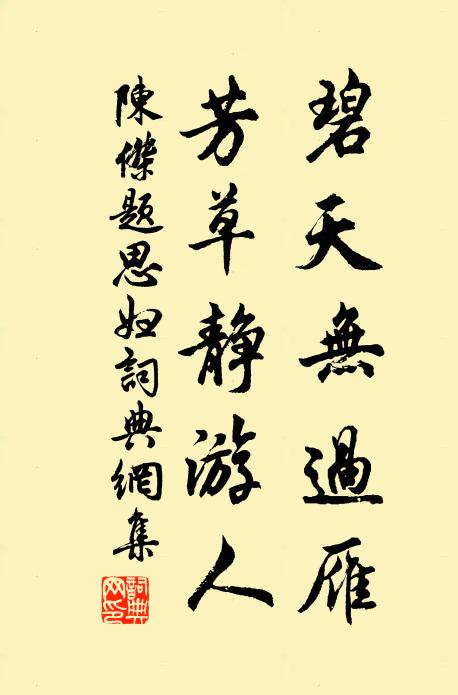 碧天無過雁
芳草靜游人
陳傑題思婦詞典網集
詞典网印